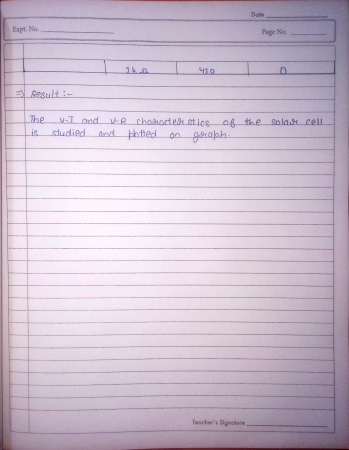 Date
Expt. No.
Page No.
1k Ω 410 0
⇒ Result :-
The V-I and V-R characteristics of the solar cell
is studied and plotted on graph.
Teacher's Signature